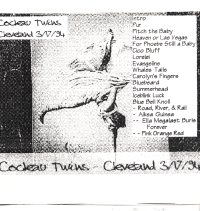 Cocteau Twins
Cleveland 3/17/94
Intro
Fur
Pitch the Baby
Heaven or Las Vegas
For Phoebe Still a Baby
Cico Buff
Lorelei
Evangeline
Whales Tails
Carolyn's Fingers
Bluebeard
Summerhead
Iceblink Luck
Blue Bell Knoll
- Road, River, & Rail
- Aikea Guinea
-- Ella Megalast Burls
Forever
-- Pink Orange Red
Cocteau Twins - Cleveland 3/17/94